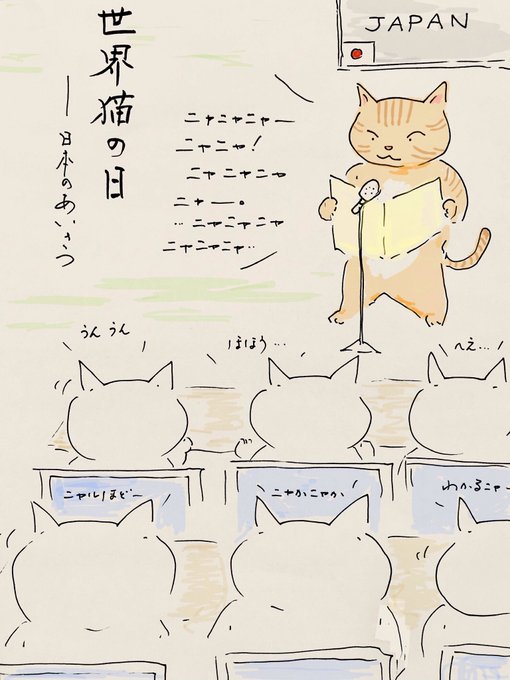 世界猫の日
―日本のあいさつ
JAPAN
ニャニャニャー
ニャニャ!
ニャニャニャ
ニャー。
..ニャニャニャ
ニャニャニャ..
うんうん
ほほう...
へえ...
ニャルほどー
ニャかニャか
わかるニャー